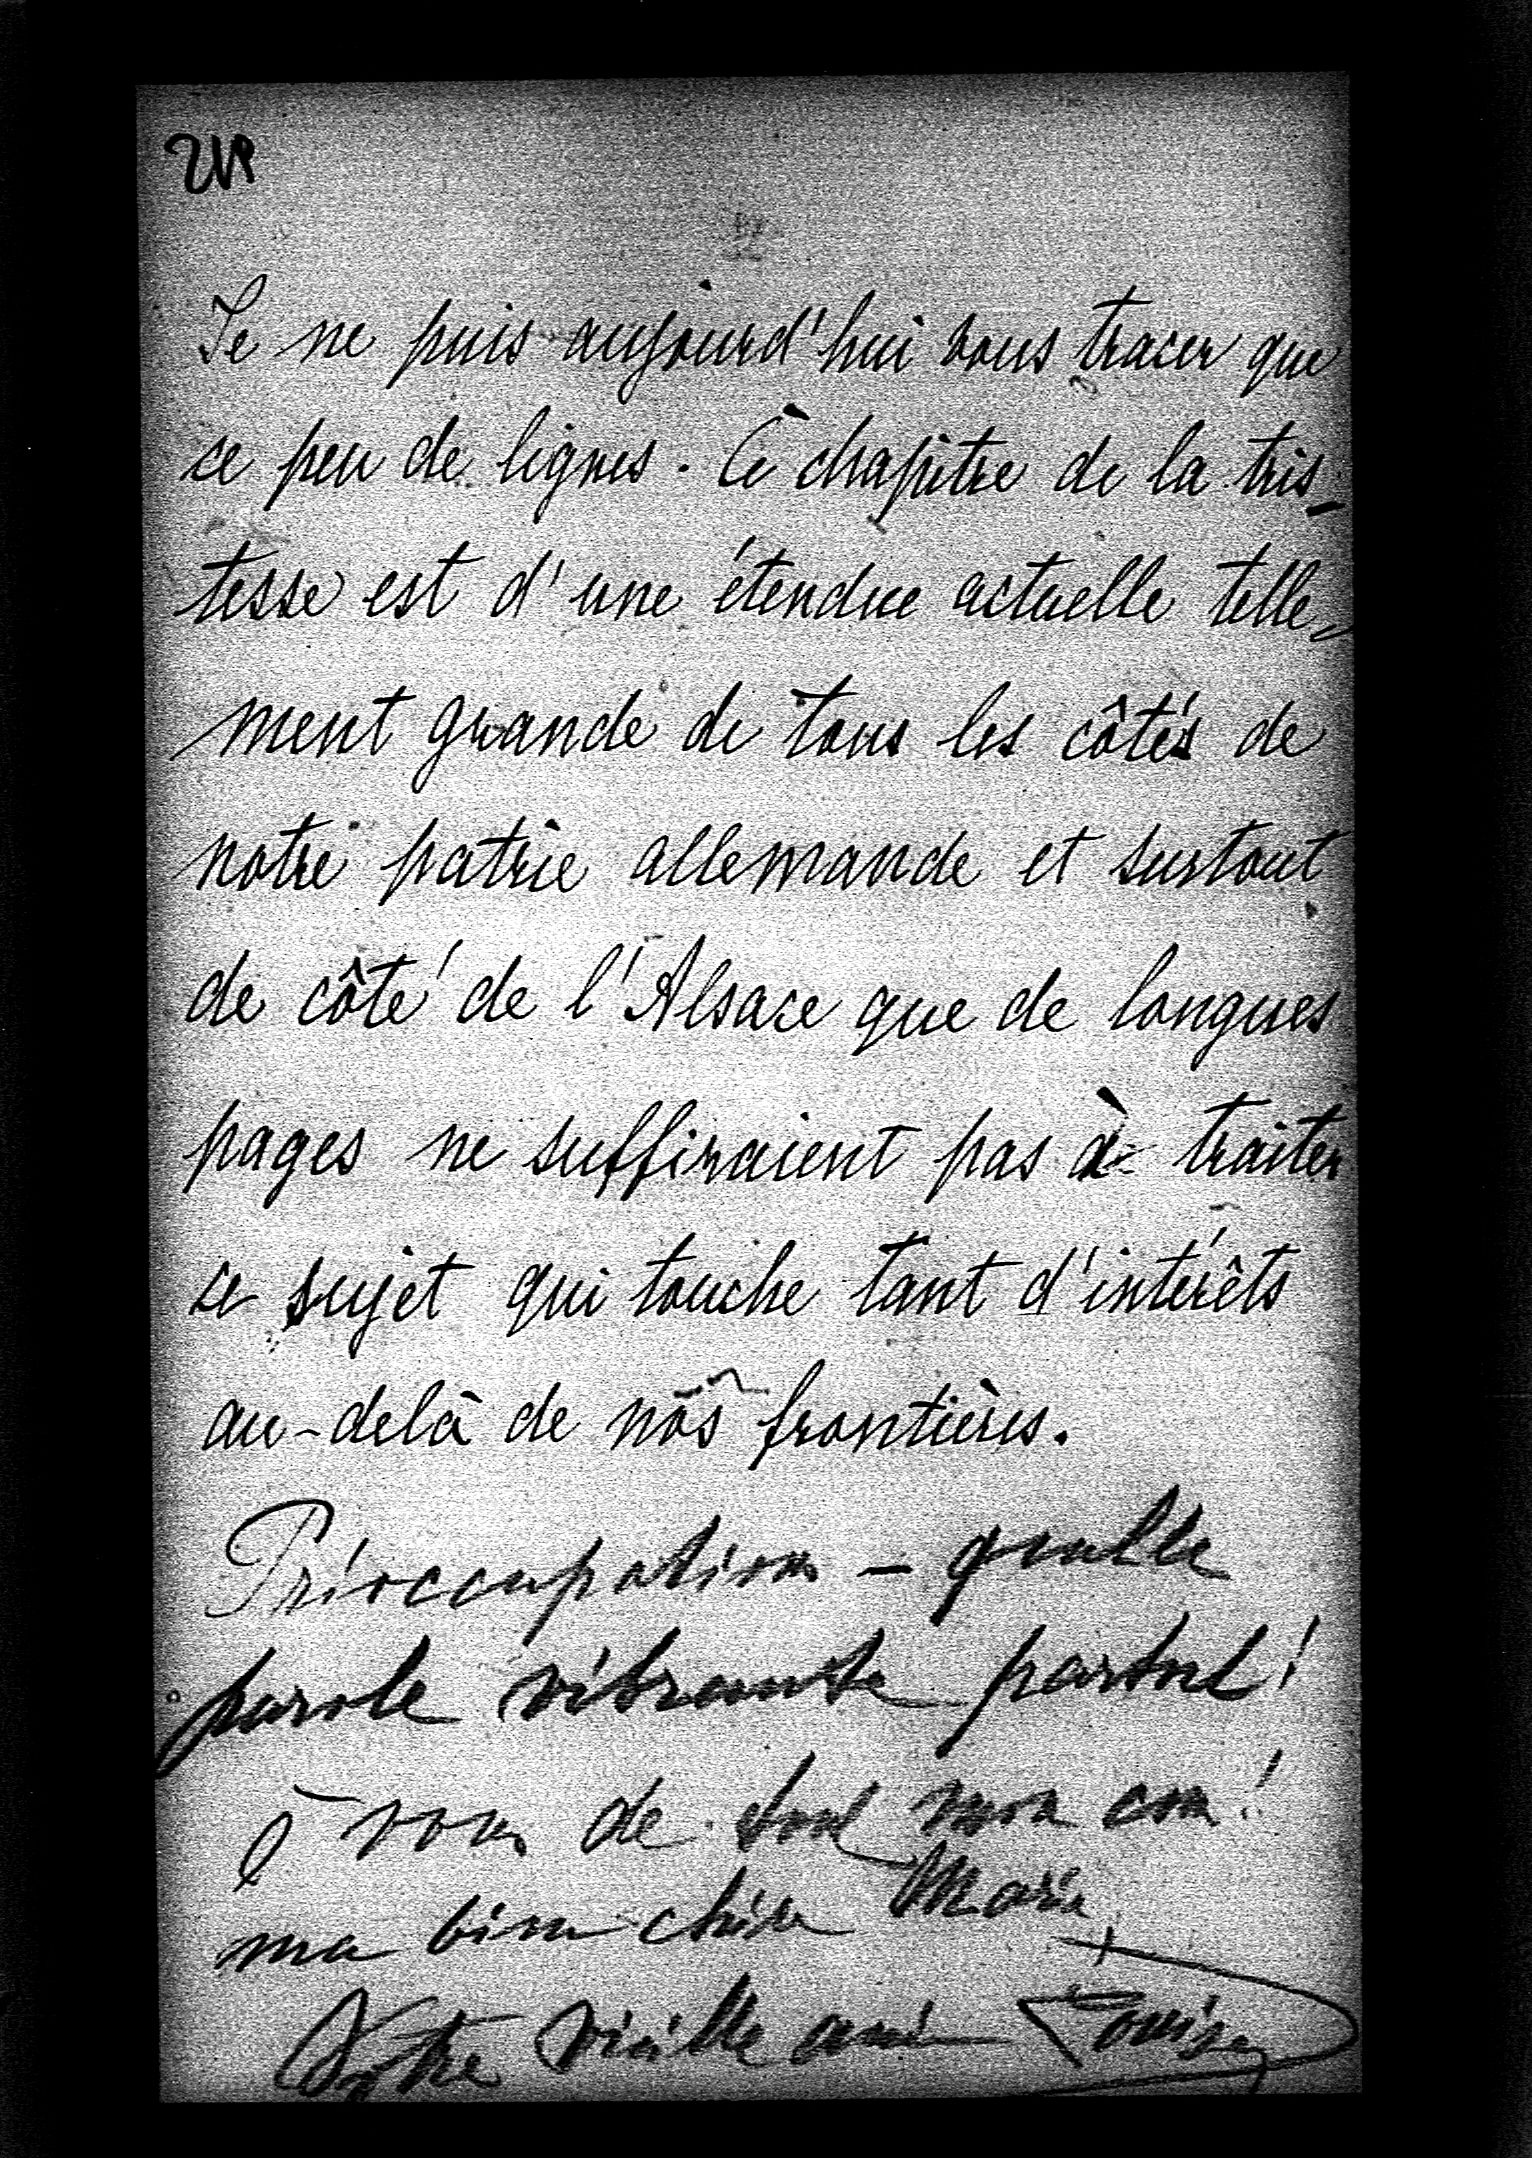 Je ne puis aujourd'hui vous tracer que
ce peu de lignes. Ce chapitre de la tris-
tesse est d'une étendue actuelle telle-
ment grande de tous les côtés de
notre patrie allemande et surtout
de côté de l'Alsace que de longues
pages ne suffiraient pas à traiter
ce sujet qui touche tant d'intérêts
au-delà de nos frontières.
Préoccupation – quelle
parole vibrante partout!
à vous de tout mon
ma bien chère Marie,
Votre vieille amie Louise